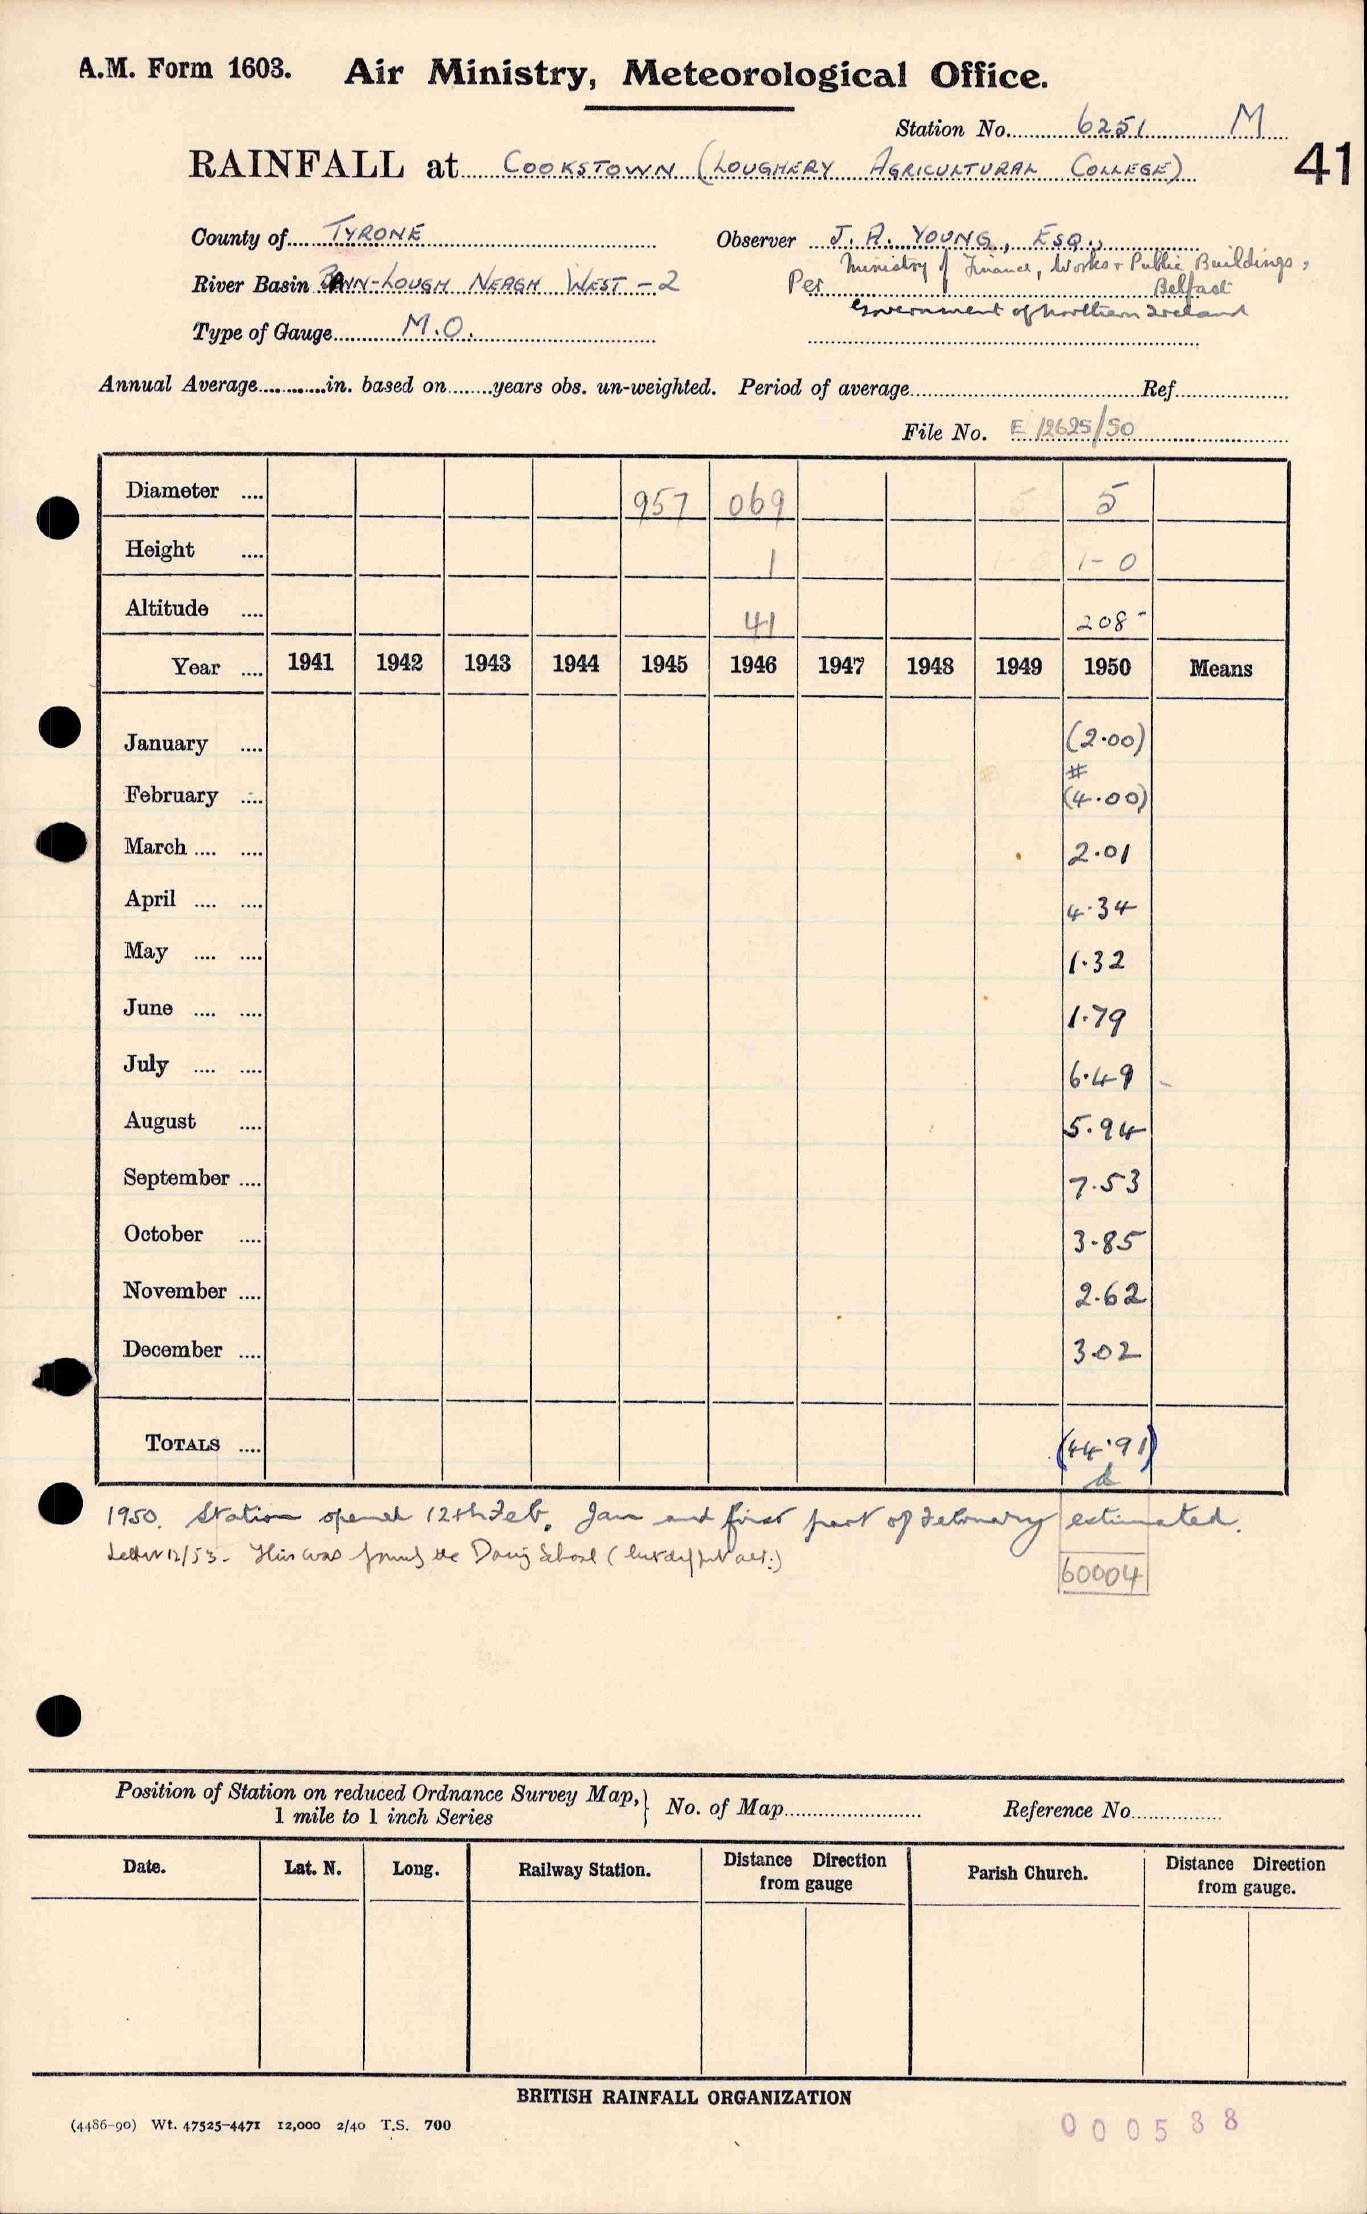 A.M. Form 1603. Air Ministry, Meteorological Office.
Station No. 6251 M
41
RAINFALL at COOKSTOWN (LOUGHERY AGRICULTURAL COLLEGE)
County of TYRONE Observer J. A. YOUNG, ESQ.,
River Basin BANN-LOUGH NEAGH WEST - 2 Per Ministry of Finance, Works & Public Buildings, Belfast
Type of Gauge M.O. Government of Northern Ireland
Annual Average in. based on years obs. un-weighted. Period of average Ref
File No. E 12625/50
Diameter 957 069 5 5
Height 1 1-0 1-0
Altitude 41 208
Year 1941 1942 1943 1944 1945 1946 1947 1948 1949 1950 Means
January (2.00)
#
February (4.00)
March 2.01
April 4.34
May 1.32
June 1.79
July 6.49
August 5.94
September 7.53
October 3.85
November 2.62
December 3.02
TOTALS (44.91)
1950. Station opened 12th Feb. Jan and first part of February estimated.
Letter 12/53. This was the School
60004
Position of Station on reduced Ordnance Survey Map,} No. of Map Reference No.
1 mile to 1 inch Series
Date. Lat. N. Long. Railway Station. Distance Direction from gauge Parish Church. Distance Direction from gauge.
BRITISH RAINFALL ORGANIZATION
(4486-90) Wt. 47525-4471 12,000 2/40 T.S. 700
000588